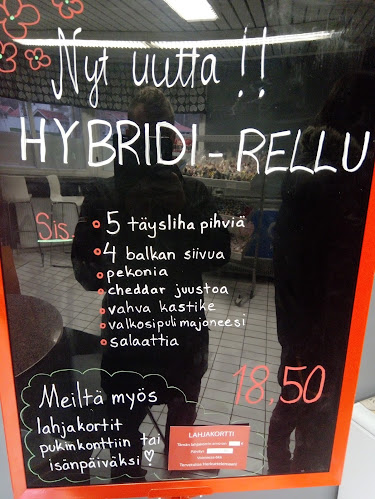 Nyt uutta !!
HYBRIDI-RELLU
Sis.
5 täysliha pihviä
4 balkan siivua
pekonia
cheddar juustoa
vahva kastike
valkosipulimajoneesi
salaattia
18,50
Meiltä myös
lahjakortit
pukinkonttiin tai
isänpäiväksi
LAHJAKORTTI